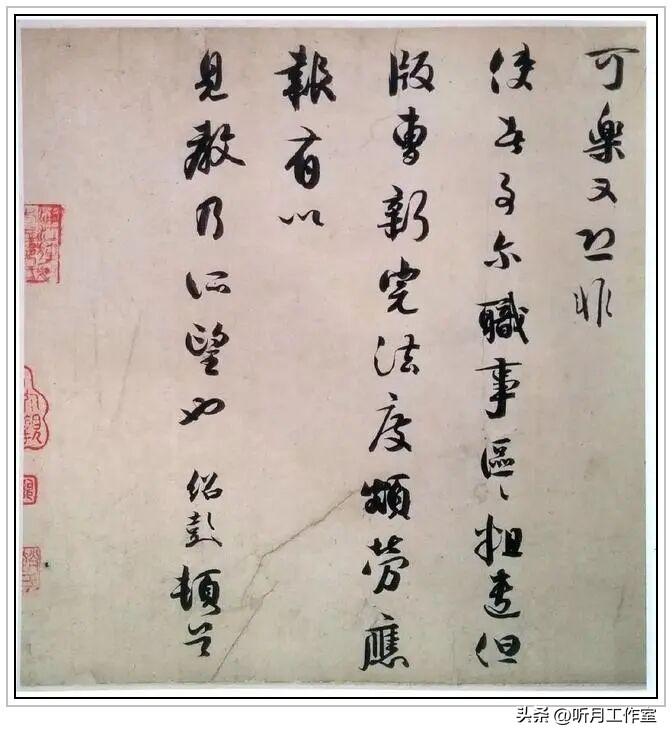 可樂又恐非
使者事尔職事區〻粗遣但
版曹新定法度頗勞應
報有以
見教乃所望也 紹彭頓首
头条 @听月工作室